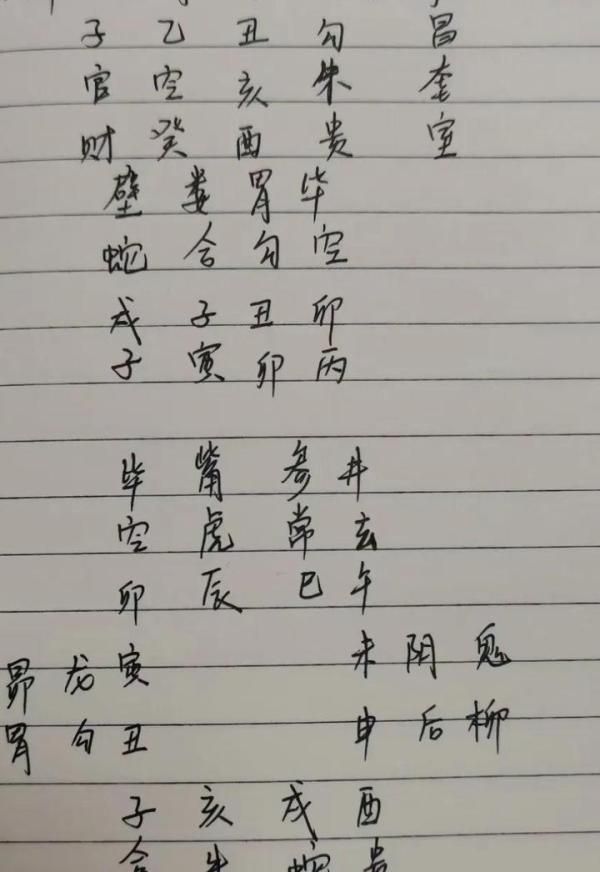 子 乙 丑 勾 昌
官 空 亥 朱 奎
财 癸 酉 贵 室
壁 娄 胃 毕
蛇 合 勾 空
戌 子 丑 卯
子 寅 卯 丙
毕 觜 参 井
空 虎 常 玄
卯 辰 巳 午
昴 龙 寅 未 阴 鬼
胃 勾 丑 申 后 柳
子 亥 戌 酉
合 朱 蛇 贵